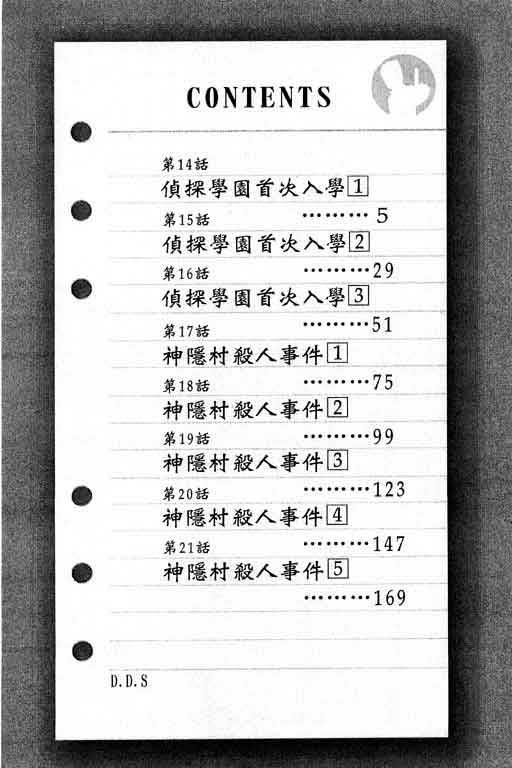 CONTENTS
第14話
偵探學園首次入學1
第15話 ………5
偵探學園首次入學2
第16話 ………29
偵探學園首次入學3
第17話 ………51
神隱村殺人事件1
第18話 ………75
神隱村殺人事件2
第19話 ………99
神隱村殺人事件3
第20話 ………123
神隱村殺人事件4
第21話 ………147
神隱村殺人事件5
………169
D.D.S